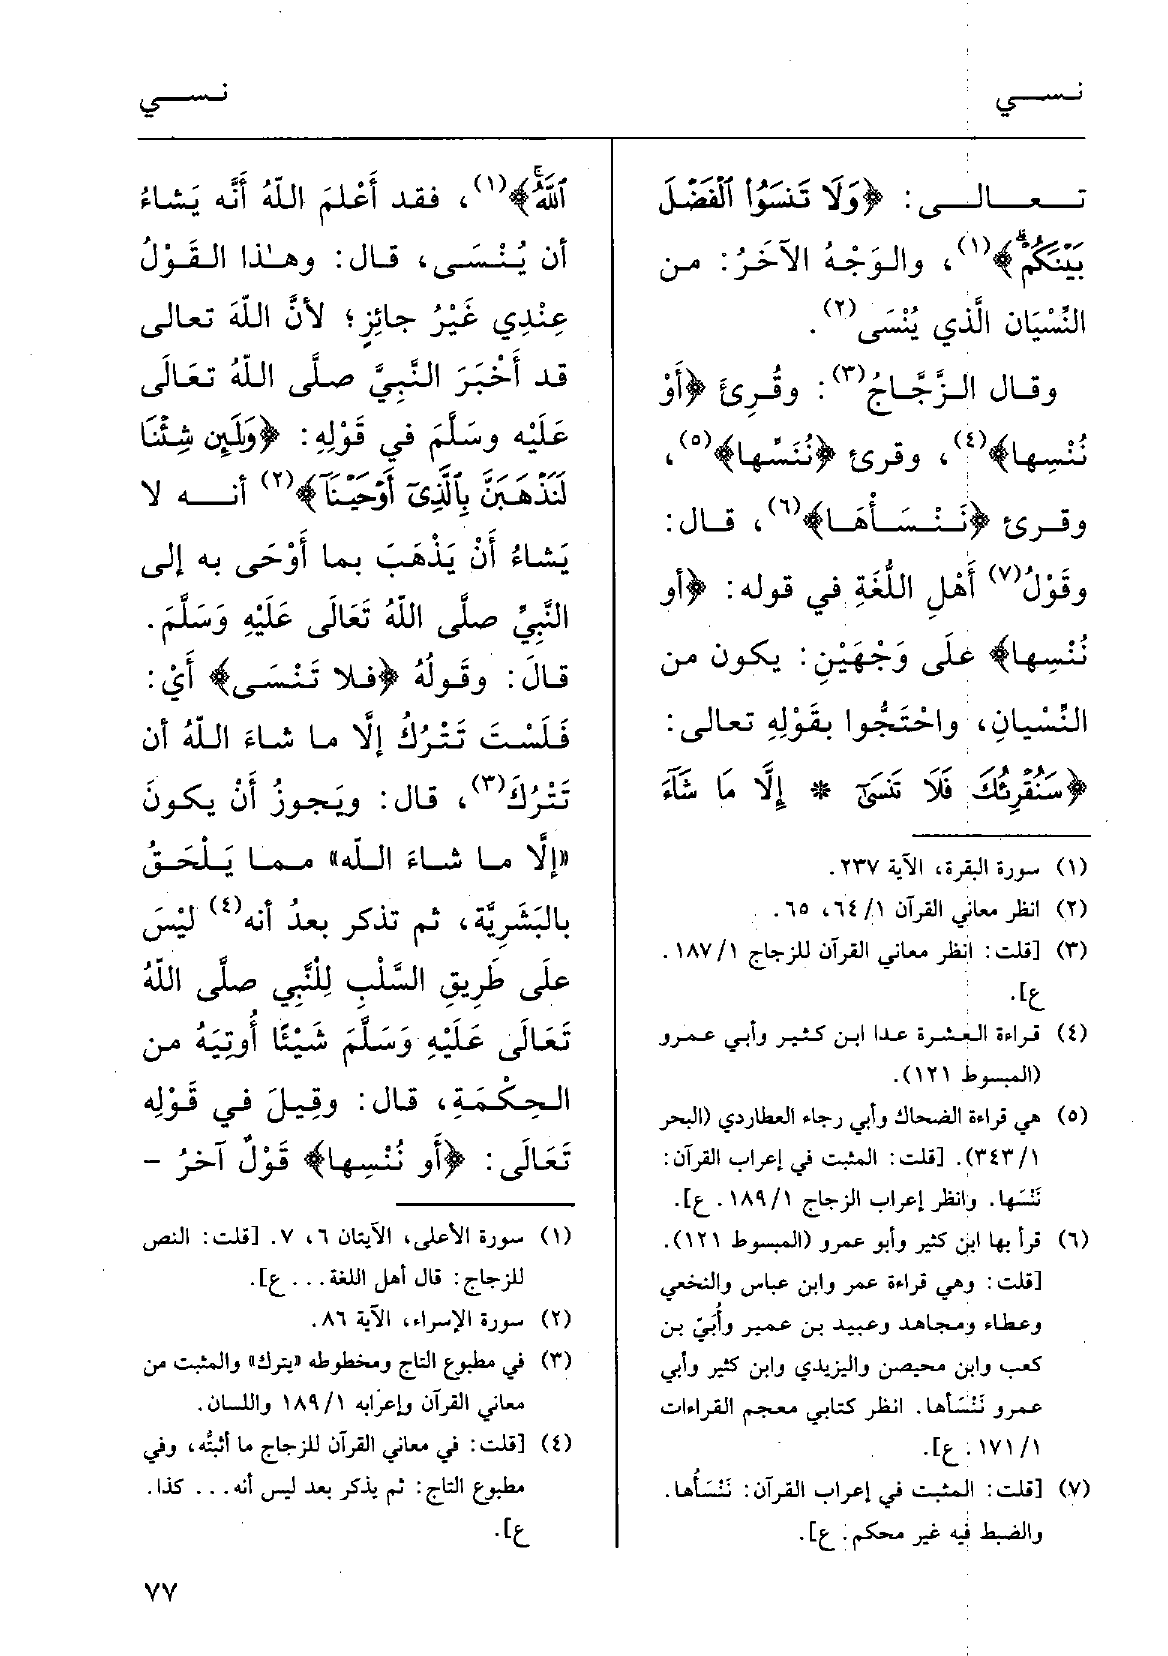 نسي
نسي
تعالى: ﴿وَلَا تَنسَوُا۟ ٱلْفَضْلَ
بَيْنَكُمْ﴾(١)، والوَجْهُ الآخَرُ: من
النِّسْيَان الَّذي يُنْسَى(٢).
وقال الزَّجَّاجُ(٣): وقُرِئَ ﴿أَوْ
نُنْسِها﴾(٤)، وقرئ ﴿نُنَسِّها﴾(٥)،
وقرئ ﴿نَنْسَأْهَا﴾(٦)، قال:
وقَوْلُ(٧) أَهْلِ اللُّغَةِ في قوله: ﴿أو
نُنْسِها﴾ عَلَى وَجْهَيْنِ: يكون من
النِّسْيانِ، واحْتَجُّوا بقَوْلِهِ تعالى:
﴿سَنُقْرِئُكَ فَلَا تَنسَىٰٓ * إِلَّا مَا شَآءَ
(١) سورة البقرة، الآية ٢٣٧.
(٢) انظر معاني القرآن ٦٤/١، ٦٥.
(٣) [قلت: انظر معاني القرآن للزجاج ١٨٧/١.
ع].
(٤) قراءة العشرة عدا ابن كثير وأبي عمرو
(المبسوط ١٢١).
(٥) هي قراءة الضحاك وأبي رجاء العطاردي (البحر
٣٤٣/١). [قلت: المثبت في إعراب القرآن:
نَنْسَها. وانظر إعراب الزجاج ١٨٩/١. ع].
(٦) قرأ بها ابن كثير وأبو عمرو (المبسوط ١٢١).
[قلت: وهي قراءة عمر وابن عباس والنخعي
وعطاء ومجاهد وعبيد بن عمير وأُبَيّ بن
كعب وابن محيصن واليزيدي وابن كثير وأبي
عمرو نَنْسَأها. انظر كتابي معجم القراءات
١٧١/١. ع].
(٧) [قلت: المثبت في إعراب القرآن: نَنْسَأُها.
والضبط فيه غير محكم. ع].
ٱللَّهُ﴾(١)، فقد أَعْلَمَ اللّهُ أَنَّه يَشاءُ
أن يُنْسَى، قال: وهٰذا القَوْلُ
عِنْدِي غَيْرُ جائِزٍ؛ لأنَّ اللّهَ تعالى
قد أَخْبَرَ النَّبِيَّ صلَّى اللّهُ تعَالَى
عَلَيْه وسَلَّمَ في قَوْلِهِ: ﴿وَلَئِن شِئْنَا
لَنَذْهَبَنَّ بِٱلَّذِىٓ أَوْحَيْنَآ﴾(٢) أنه لا
يَشاءُ أَنْ يَذْهَبَ بما أَوْحَى به إلى
النَّبِيِّ صلَّى اللّهُ تَعَالَى عَلَيْهِ وَسَلَّمَ.
قالَ: وقَولُهُ ﴿فلا تَنْسَى﴾ أَيْ:
فَلَسْتَ تَتْرُكُ إلَّا ما شاءَ اللّهُ أن
تَتْرُكَ(٣)، قال: ويَجوزُ أَنْ يكونَ
«إلَّا ما شاءَ اللّه» مما يَلْحَقُ
بالبَشَرِيَّة، ثم تذكر بعدُ أنه(٤) ليْسَ
علَى طَرِيقِ السَّلْبِ لِلْنَّبِي صلَّى اللّهُ
تَعَالَى عَلَيْهِ وَسَلَّمَ شَيْئًا أُوتِيَهُ من
الحِكْمَةِ، قال: وقِيلَ في قَوْلِه
تَعَالَى: ﴿أو نُنْسِها﴾ قَوْلٌ آخرُ -
(١) سورة الأعلى، الآيتان ٦، ٧. [قلت: النص
للزجاج: قال أهل اللغة... ع].
(٢) سورة الإسراء، الآية ٨٦.
(٣) في مطبوع التاج ومخطوطه «يترك» والمثبت من
معاني القرآن وإعرابه ١٨٩/١ واللسان.
(٤) [قلت: في معاني القرآن للزجاج ما أثبتُّه، وفي
مطبوع التاج: ثم يذكر بعد ليس أنه... كذا.
ع].
٧٧